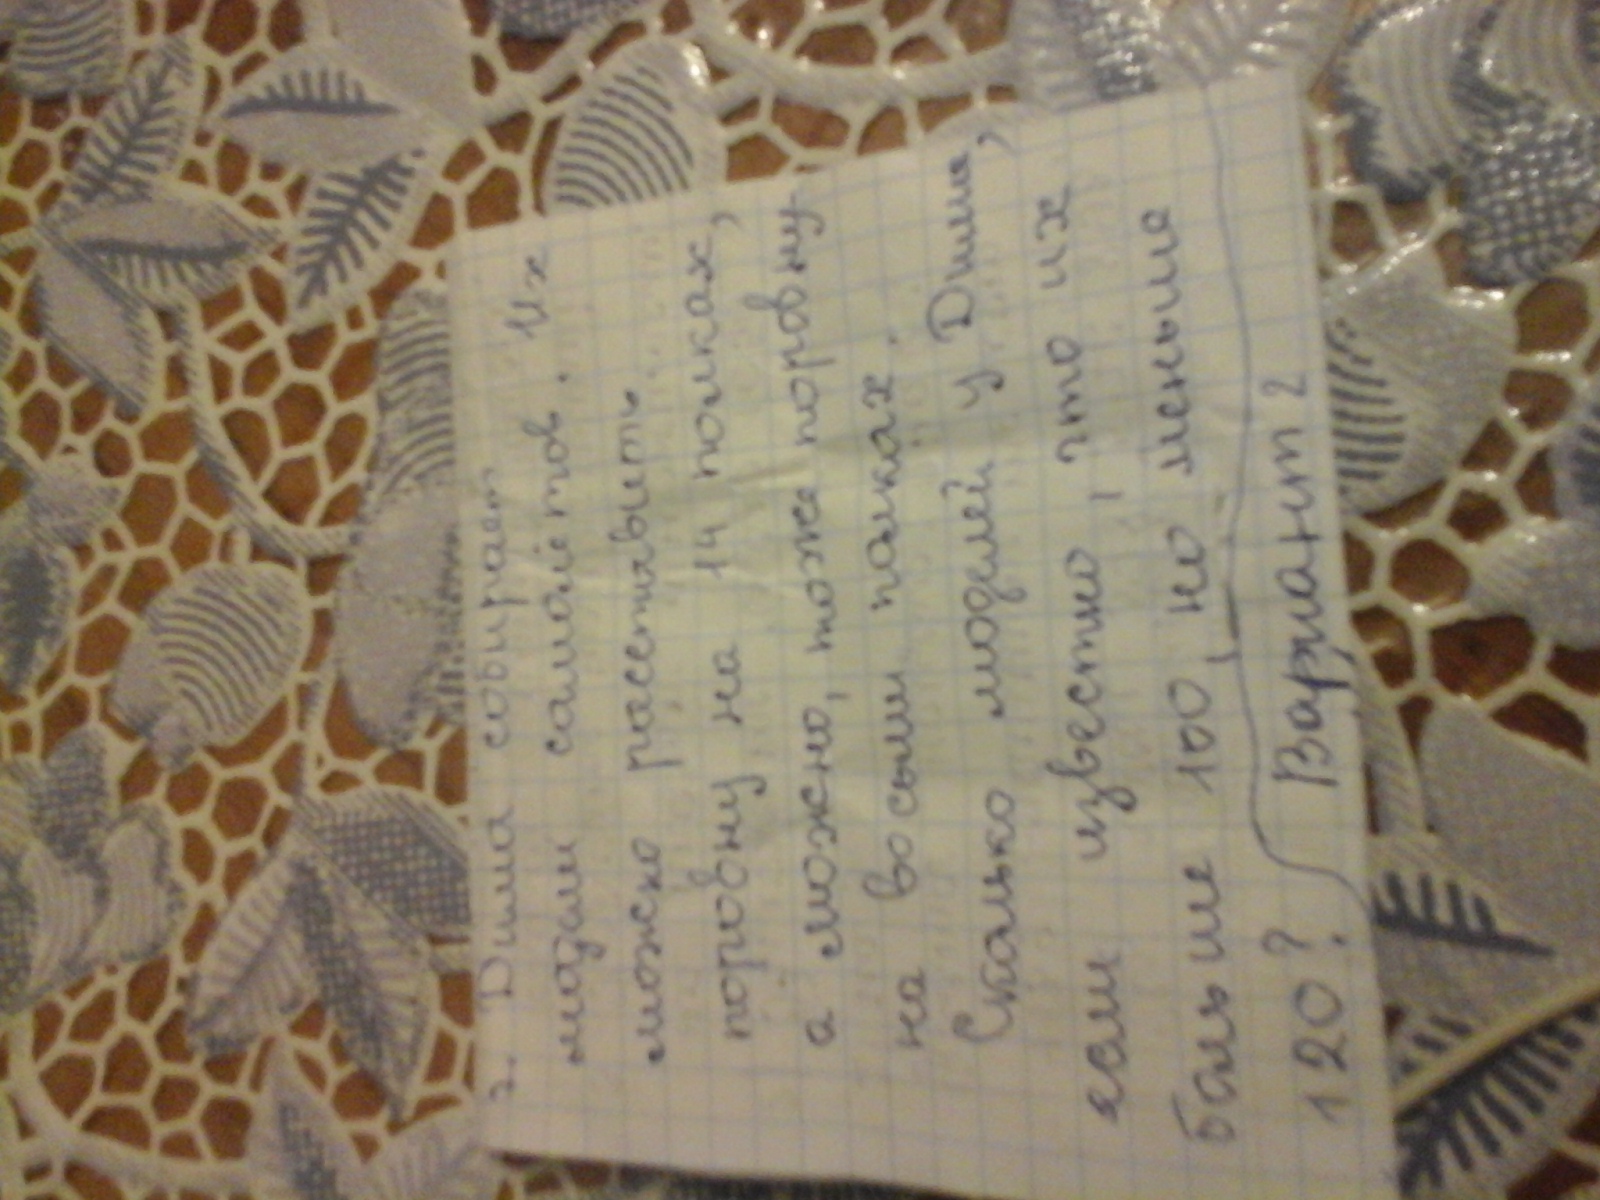 2. Дима собирает
модели самолётов. Их
можно расставить
поровну на 14 полках,
а можно, тоже поровну
на восьми полках.
Сколько моделей у Димы,
если известно, что их
больше 100, но меньше
120?
Вариант 2